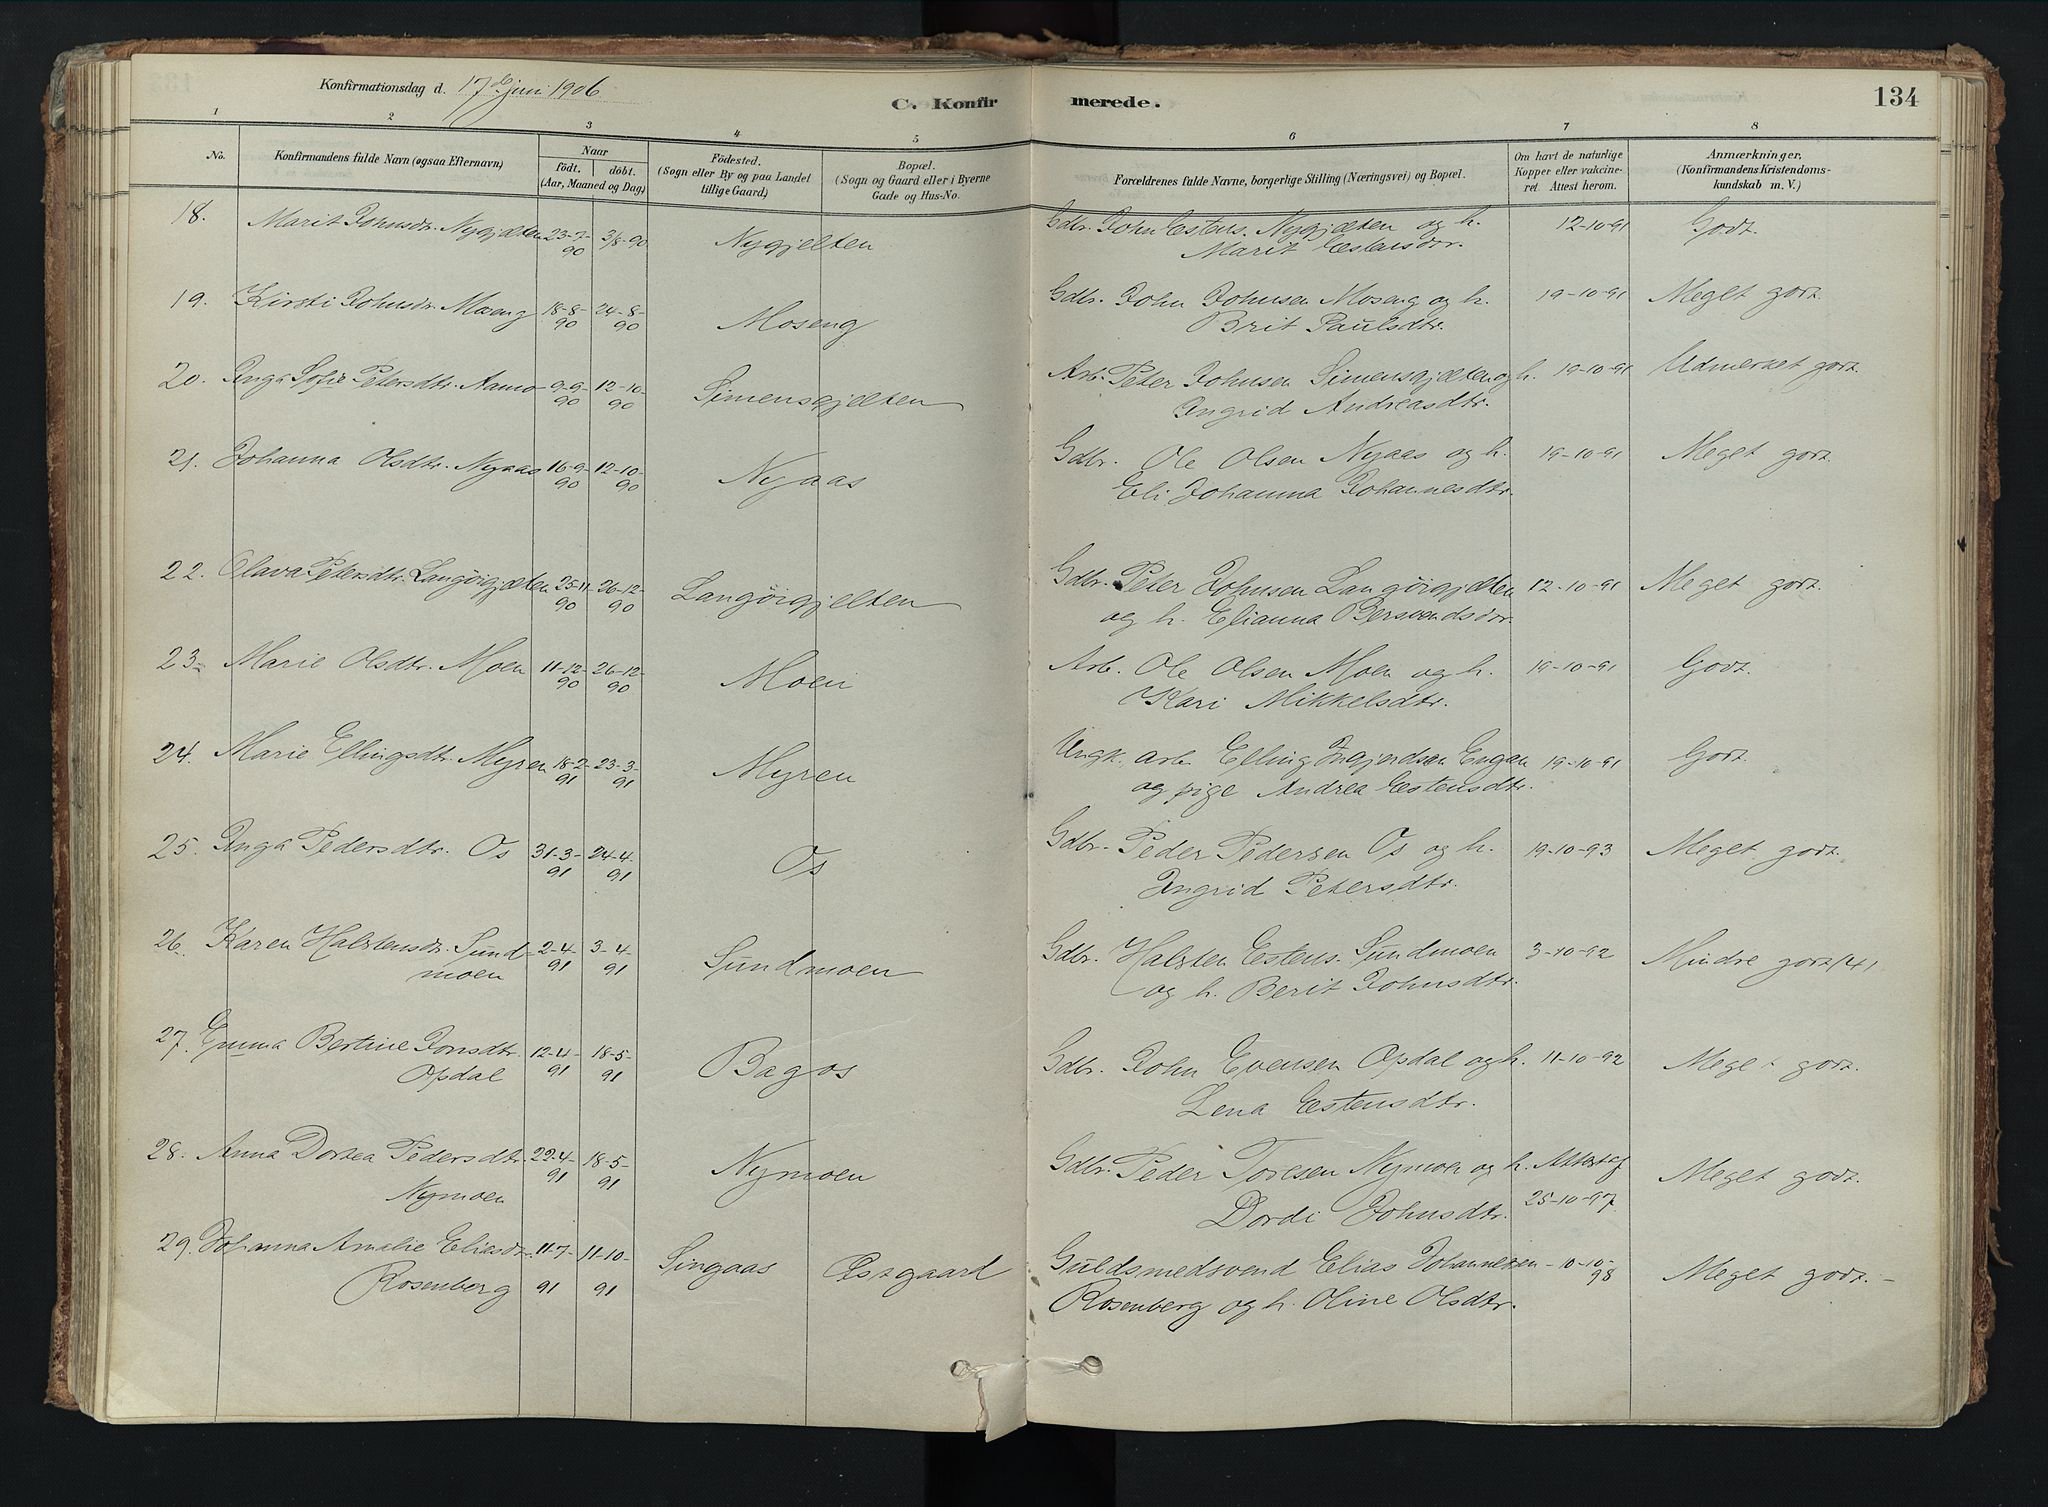 Konfirmationsdag d. 17de Juni 1906
C. Konfir merede. 134
1 2 3 4 5 6 7 8
No. Konfirmandens fulde Navn (ogsaa Efternavn) Naar födt. döbt. (Aar, Maaned og Dag) Födested. (Sogn eller By og paa Landet tillige Gaard) Bopæl. (Sogn og Gaard eller i Byerne Gade og Hus-No. Forældrenes fulde Navne, borgerlige Stilling (Næringsvei) og Bopæl. Om havt de naturlige Kopper eller vakcineret. Attest herom. Anmærkninger. (Konfirmandens Kristendomskundskab m. V.)
18. Marit Johnsdr. Nygjelten 23-7-90 3/8-90 Nygjelten Gdbr. John Estens. Nygjelten og h. 12-10-91 Godt.
Marit Estensdr.
19. Kirsti Johnsdr. Moseng 18-8-90 24-8-90 Moseng Gdbr. John Johnsen Moseng og h. 19-10-91 Meget godt.
Brit Paulsdtr.
20. Inga Sofie Petersdtr. Aamo 9-9-90 12-10-90 Simensgjelten Arb. Peter Johnsen Simensgjelten og h. 19-10-91 Udmerket godt.
Ingrid Andreasdtr.
21. Johanna Olsdtr. Nyaas 16-9-90 12-10-90 Nyaas Gdbr. Ole Olsen Nyaas og h. 19-10-91 Meget godt.
Eli Johanna Johannesdtr.
22. Olava Petersdtr. Langöigjelten 25-11-90 26-12-90 Langöigjelten Gdbr. Peter Johnsen Langöigjelten 12-10-91 Meget godt.
og h. Elianna Bersvendsdtr.
23. Marie Olsdtr. Moen 11-12-90 26-12-90 Moen Arb. Ole Olsen Moen og h. 19-10-91 Godt.
Kari Mikkelsdtr.
24. Marie Ellingsdtr. Myren 18-2-91 23-3-91 Myren Ungk. arb. Elling Engan 19-10-91 Godt.
og pige Andrea Estensdtr.
25. Inga Pedersdtr. Os 31-3-91 24-4-91 Os Gdbr. Peder Pedersen Os og h. 19-10-93 Meget godt.
Ingrid Petersdtr.
26. Karen Halstensdr. Sund- 2-4-91 3-4-91 Sundmoen Gdbr. Halsten Estens. Sundmoen 3-10-92 Mindre godt (4)
moen og h. Berit Johnsdtr.
27. Emma Bertine Jonsdtr. 12-4-91 18-5-91 Bagos Gdbr. John Evensen Opdal og h. 11-10-92 Meget godt.
Opdal Lena Estensdtr.
28. Anna Dortea Pedersdtr. 22-4-91 18-5-91 Nymoen Gdbr. Peder Toresen Nymoen og h. Attest af Meget godt.
Nymoen Dordi Johnsdtr. 25-10-97
29. Johanna Amalie Eliasdr. 11-7-91 11-10-91 Singaas Östgaard Guldsmedsvend Elias Johannesen 10-10-98 Meget godt.
Rosenberg Rosenberg og h. Oline Olsdtr.